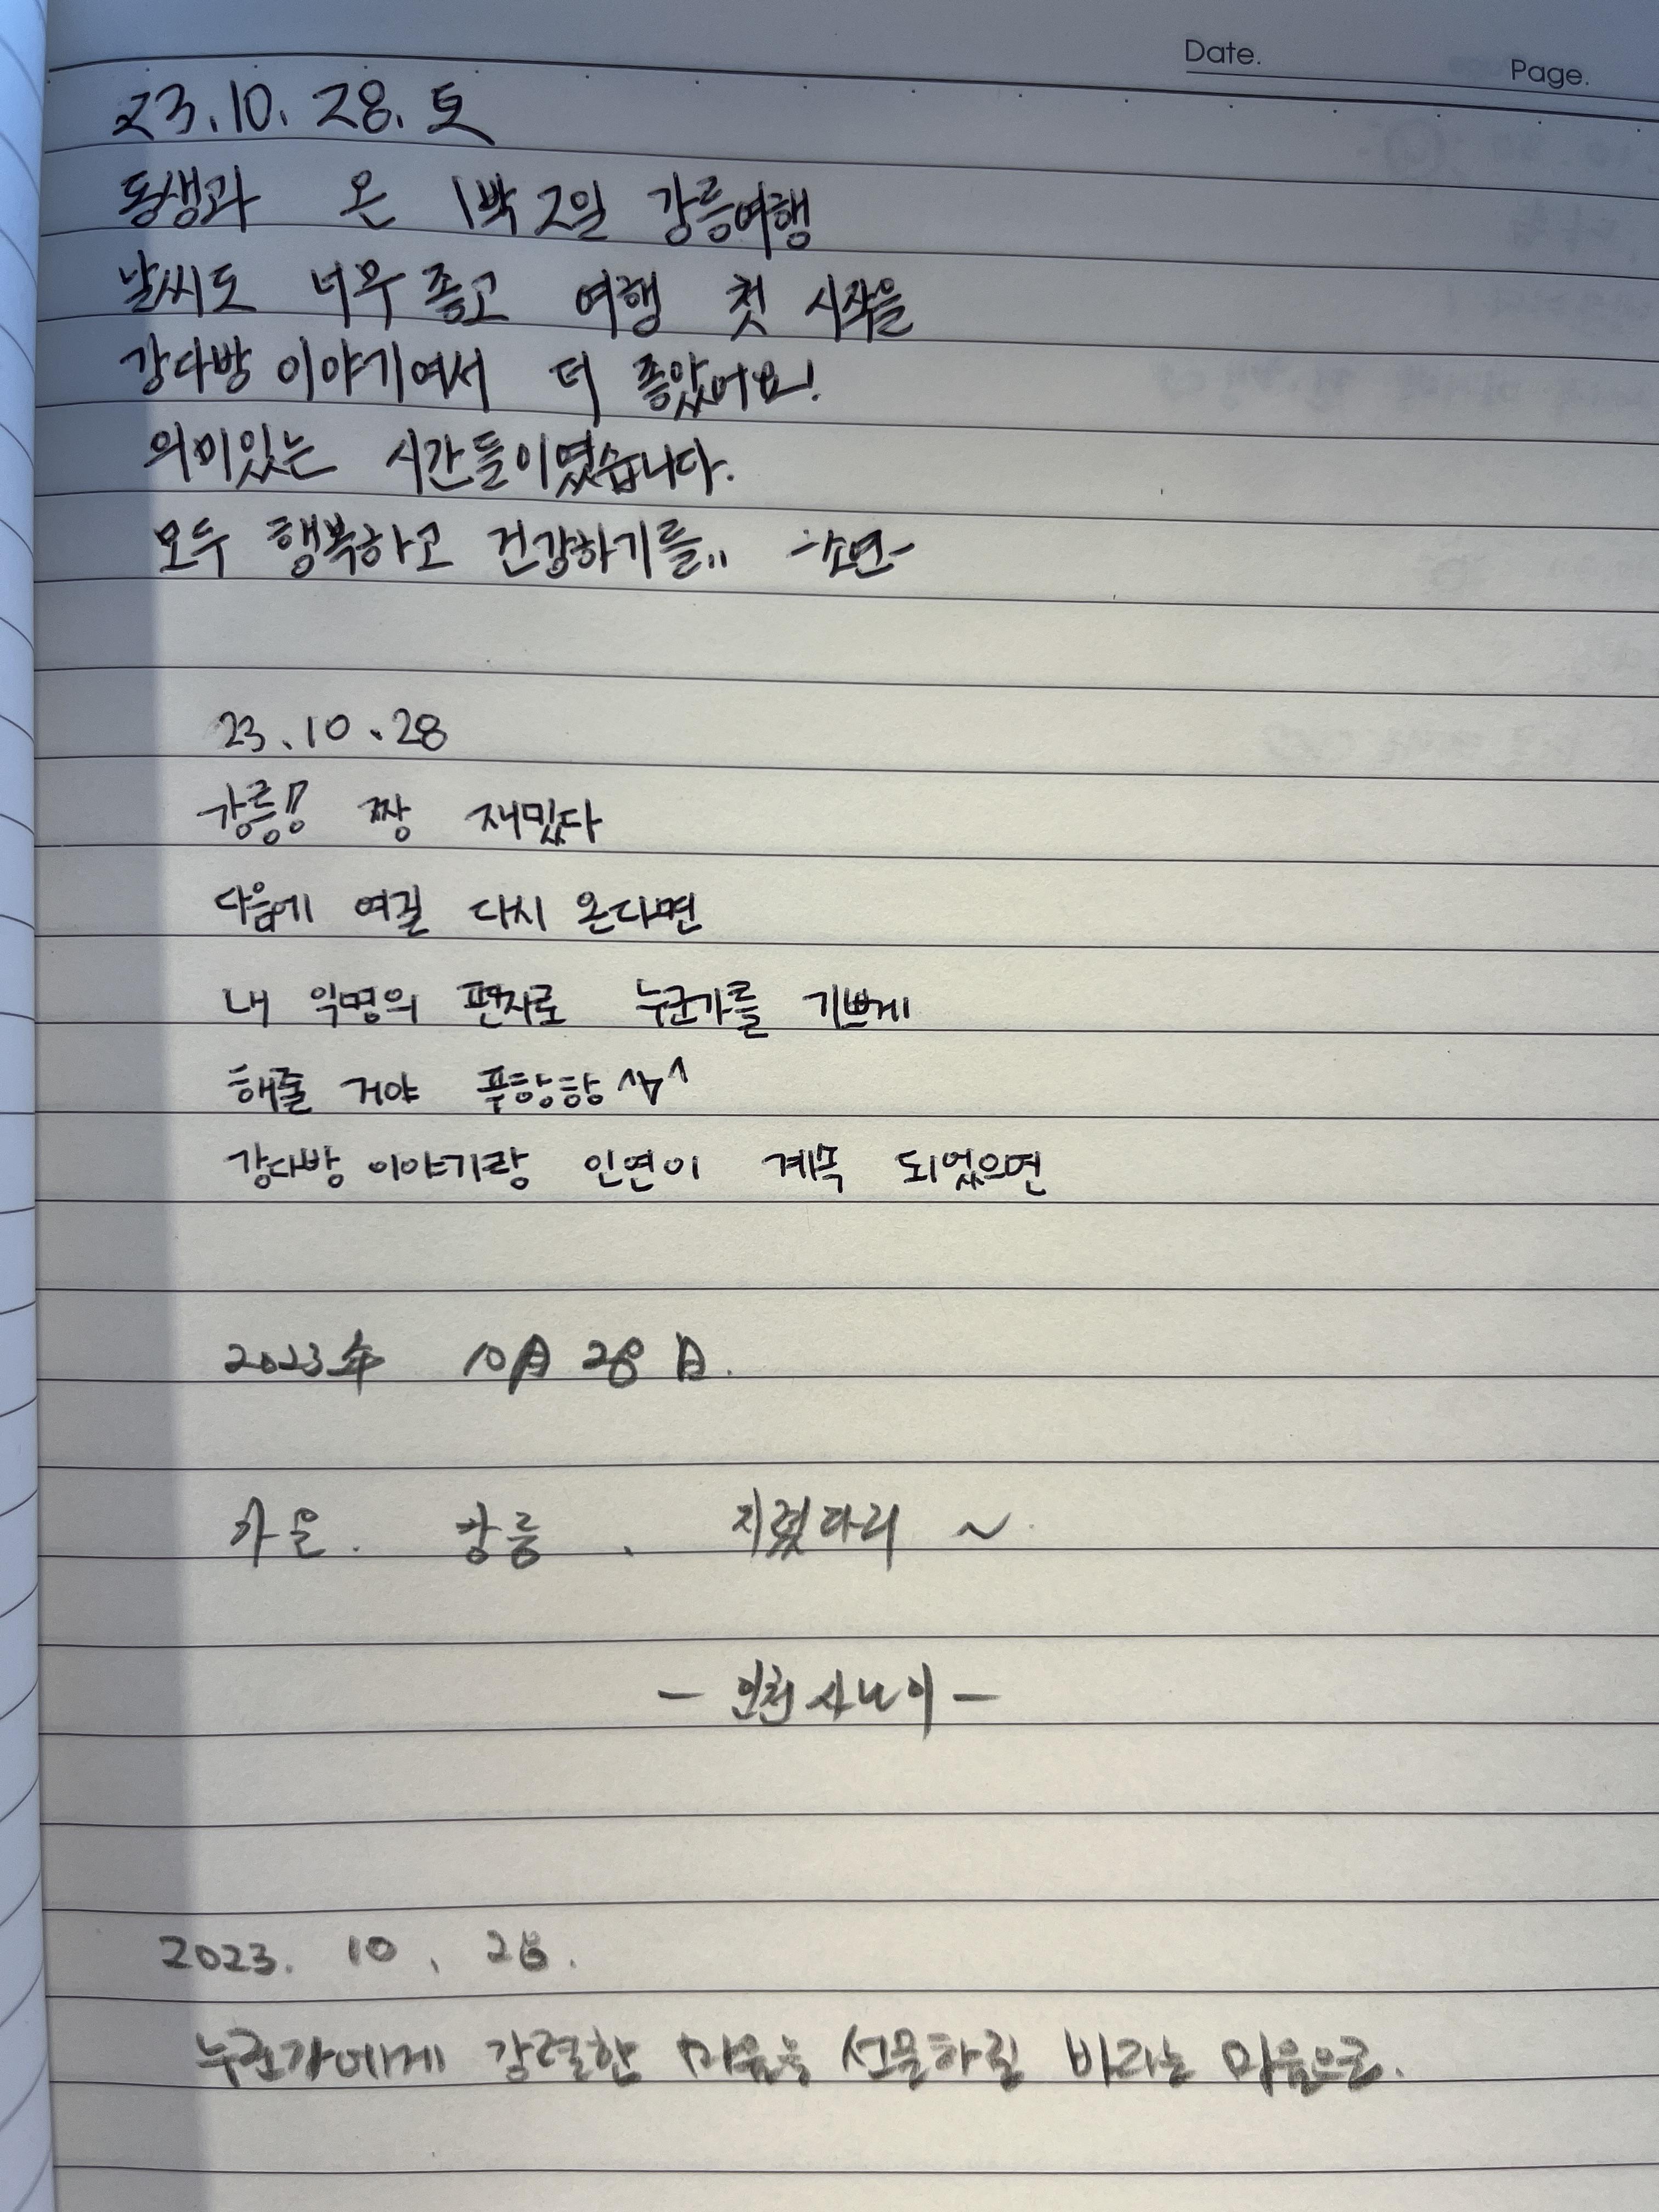 Date.
Page.
23.10.28.토
동생과 온 1박 2일 강릉여행
날씨도 너무 좋고 여행 첫 시작을
강다방 이야기여서 더 좋았어요!
의미있는 시간들이였습니다.
모두 행복하고 건강하기를.. -소연-
23.10.28
강릉!! 짱 재밌다
다음에 여길 다시 온다면
내 익명의 편지로 누군가를 기쁘게
해줄 거야 푸항항 ^^
강다방 이야기랑 인연이 계속 되었으면
2023年 10月 28日.
가을. 강릉. 지렸다리 ~
- 인천 사나이 -
2023. 10. 28.
누군가에게 강렬한 마음을 선물하길 바라는 마음으로.